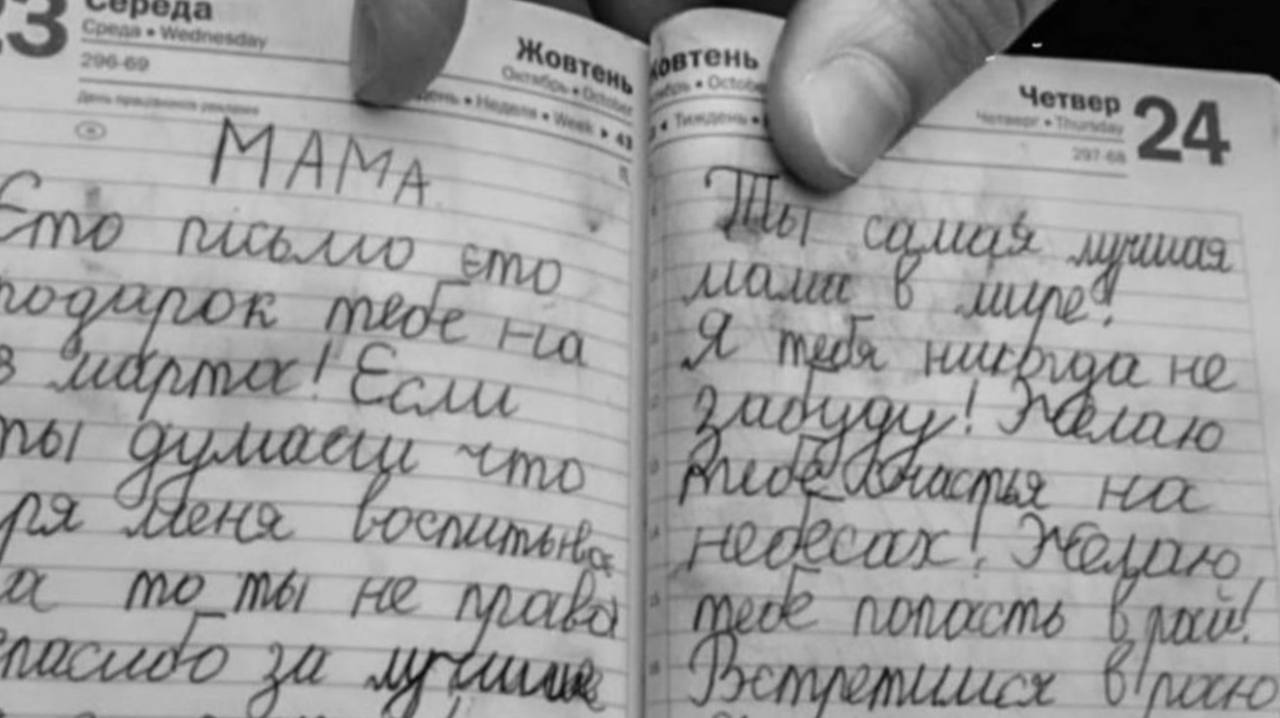 23 Середа
Среда • Wednesday
296-69
Жовтень
Октябрь • October
• Неделя • Week ▸ 43
МАМА
Єто пісьмо єто
подарок тебе на
8 марта! Если
ты думаеш что
зря меня воспитыва
ла то ты не права
спасибо за лучшие
Жовтень
Октябрь • October
• Тиждень •
Четвер 24
Четверг • Thursday
297-68
Ты самая лучшая
мама в мире!
Я тебя никогда не
забуду! Желаю
тебе счастья на
небесах! Желаю
тебе попасть в рай!
Встретимся в раю